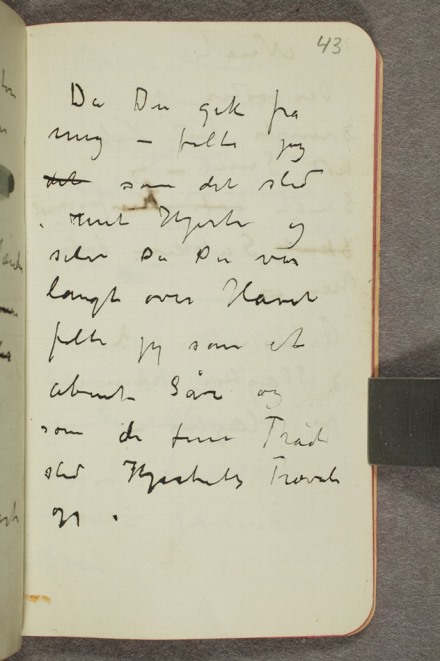 43
Da Du gik fra
mig – følte jeg
det som det sled
i mit Hjerte og
selv Da Du var
langt over Havet
følte jeg som et
abent Sår og
som de fine Tråde
sled Hjertets
op .